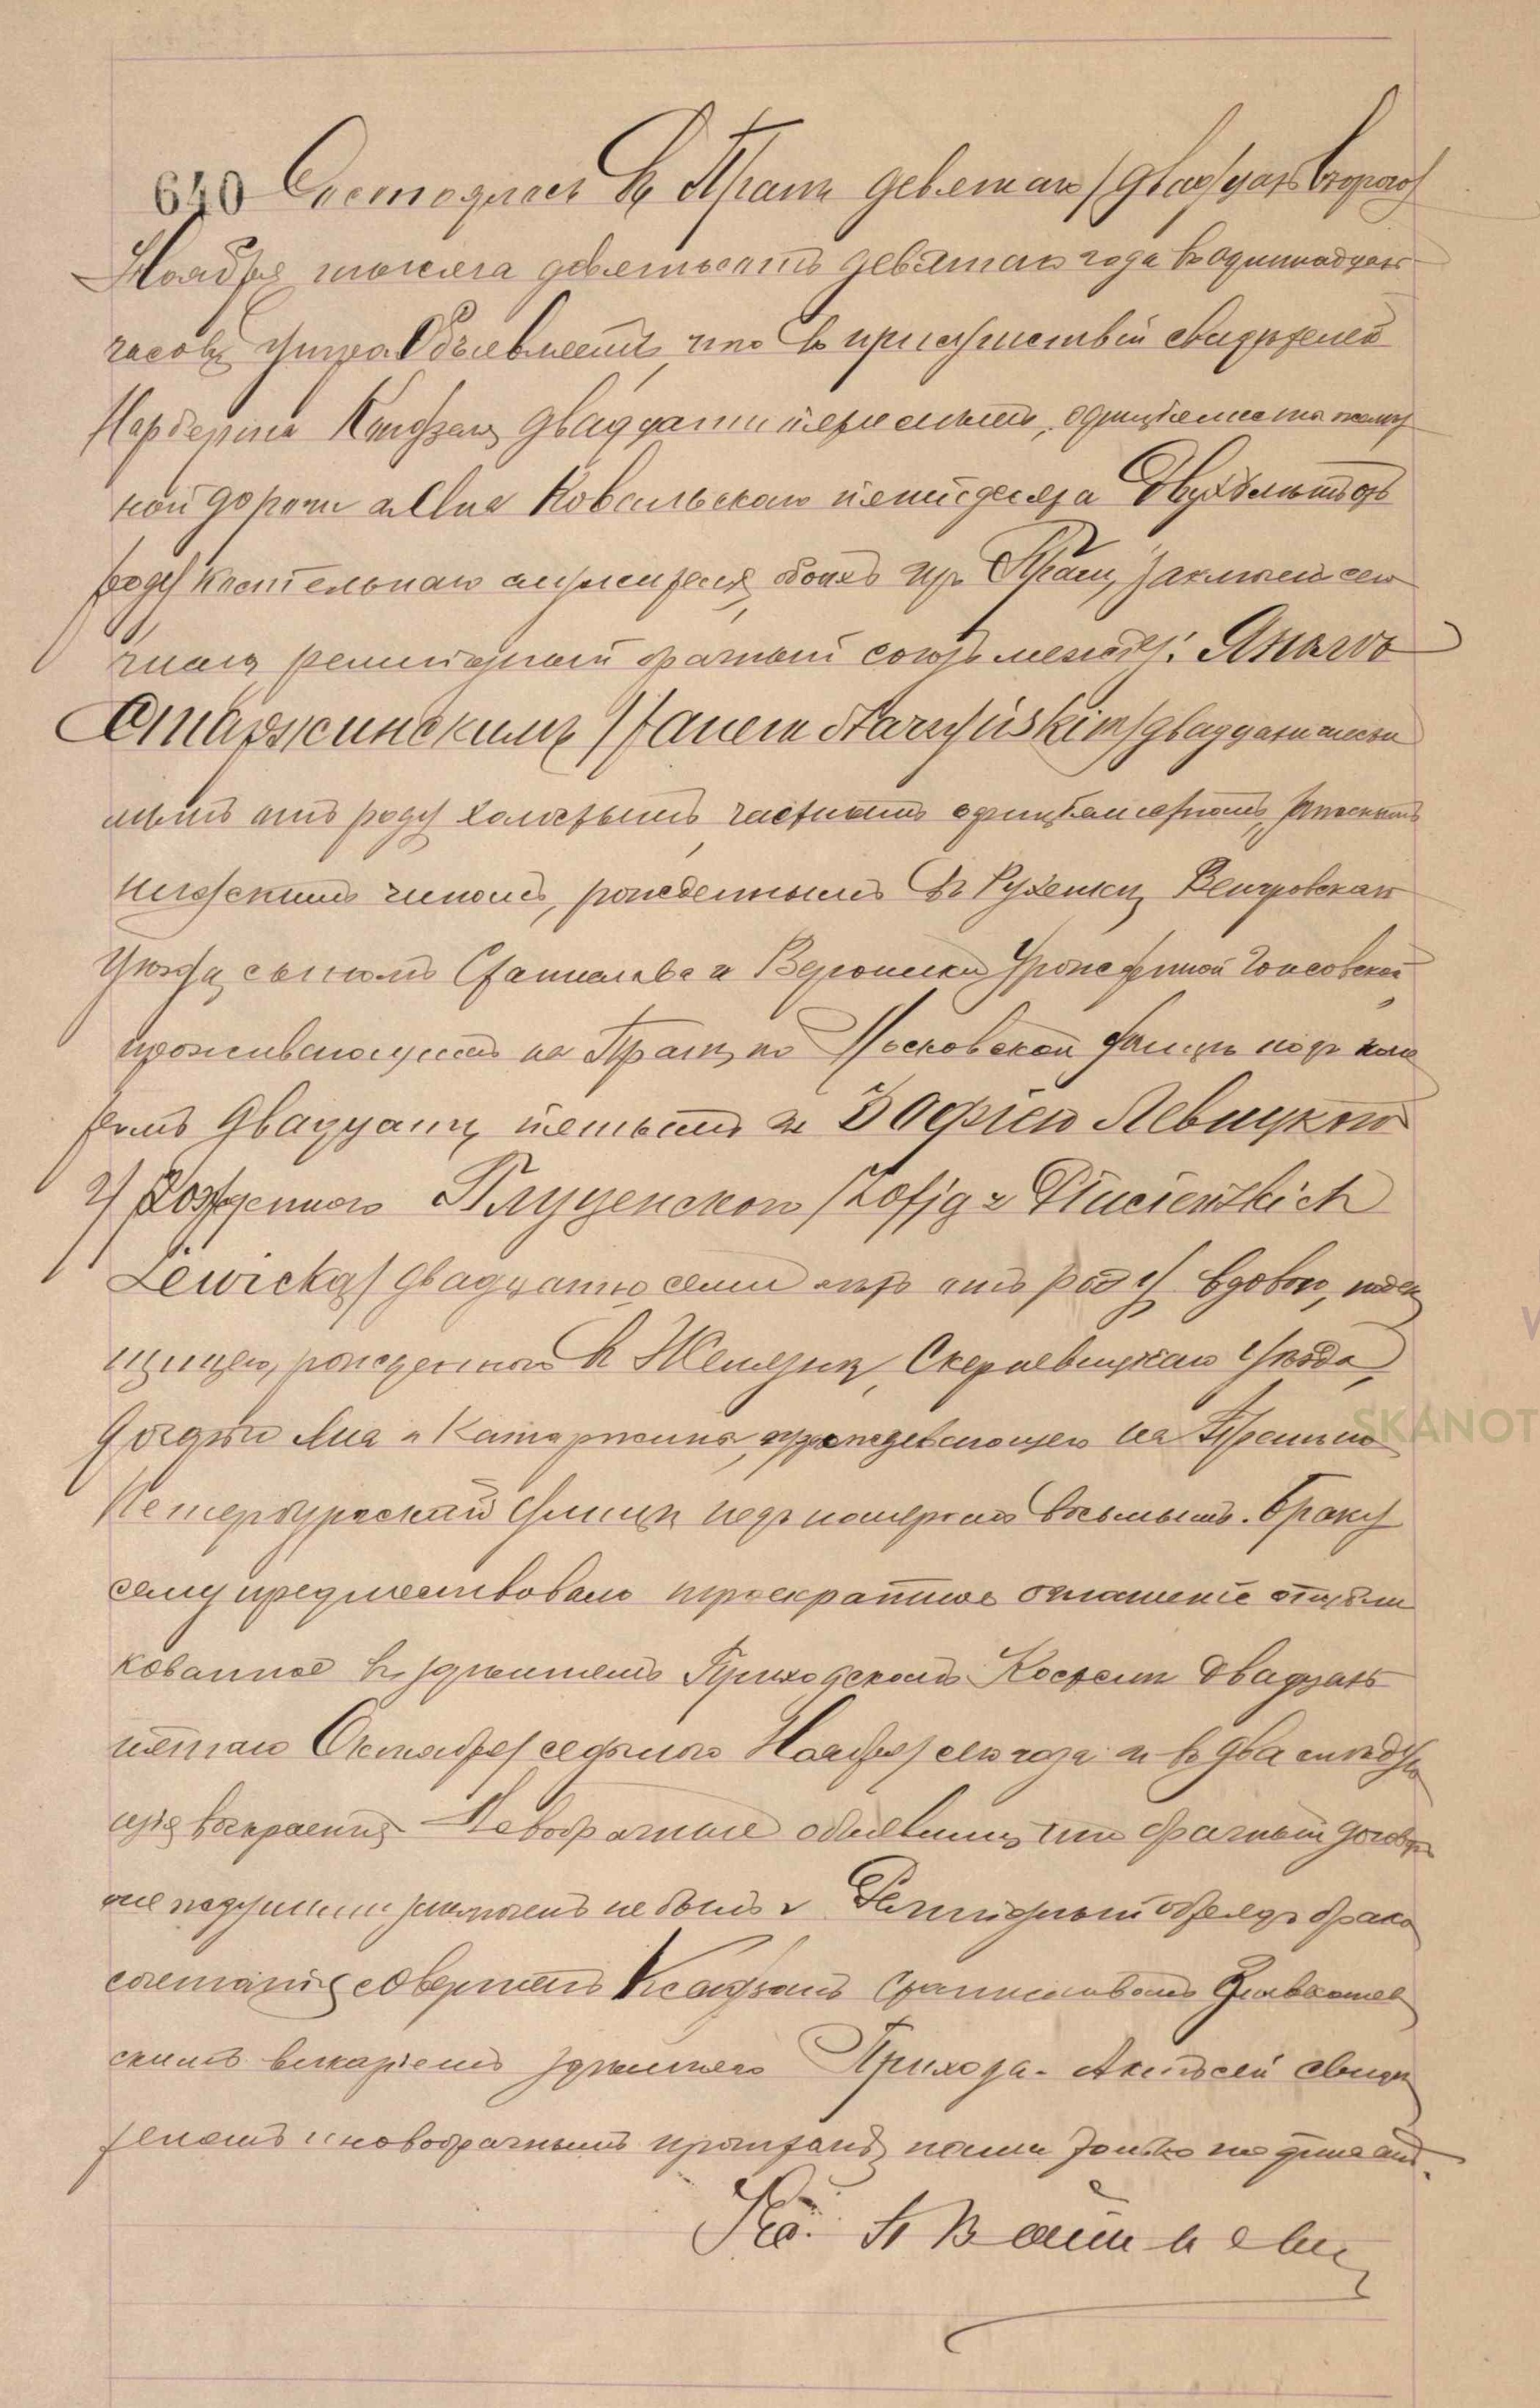 640 Состоялось въ Прагѣ девятаго /двадцать второго/
Ноября тысяча девятьсотъ девятаго года въ одиннадцать
часовъ утра. Объявляемъ, что въ присутствіи свидѣтелей
двадцати
ной дороги и Яна Ковальскаго пятидесяти двухъ лѣтъ отъ
роду костельнаго служителя, обоихъ изъ Праги, заключенъ сего
числа религіозный брачный союзъ между: Яномъ
Старжинскимъ /Janem Starzyńskim/ двадцати шести
лѣтъ отъ роду холостымъ, частнымъ
чиномъ, рожденнымъ въ Венгровскаго
уѣзда, сыномъ Станислава и Вероники урожденной
проживающимъ на Прагѣ по Московской улицѣ подъ номе
ромъ двадцать пятымъ и Зофіею Левицкою
урожденною Плуценскою /Zofją z Płucieńskich
Lewicką/ двадцати семи лѣтъ отъ роду вдовою,
рожденною въ Скерневицкаго уѣзда,
дочерью Яна и Катаржины, проживающею на Прагѣ по
Петербургской улицѣ подъ номеромъ восьмымъ. Браку
сему предшествовало троекратное оглашеніе опубли
кованное въ здѣшнемъ Приходскомъ Костелѣ двадцать
пятаго Октября /седьмого Ноября/ сего года и въ два слѣдую
щія воскресенія. Новобрачные объявили, что брачный договоръ
между ними заключенъ не былъ. Религіозный обрядъ брако
сочетанія совершенъ Ксендзомъ Станиславомъ
скимъ викаріемъ здѣшняго Прихода. Актъ сей свидѣ
телямъ и новобрачнымъ прочитанъ, нами только подписанъ.
Кс.
SKANOT